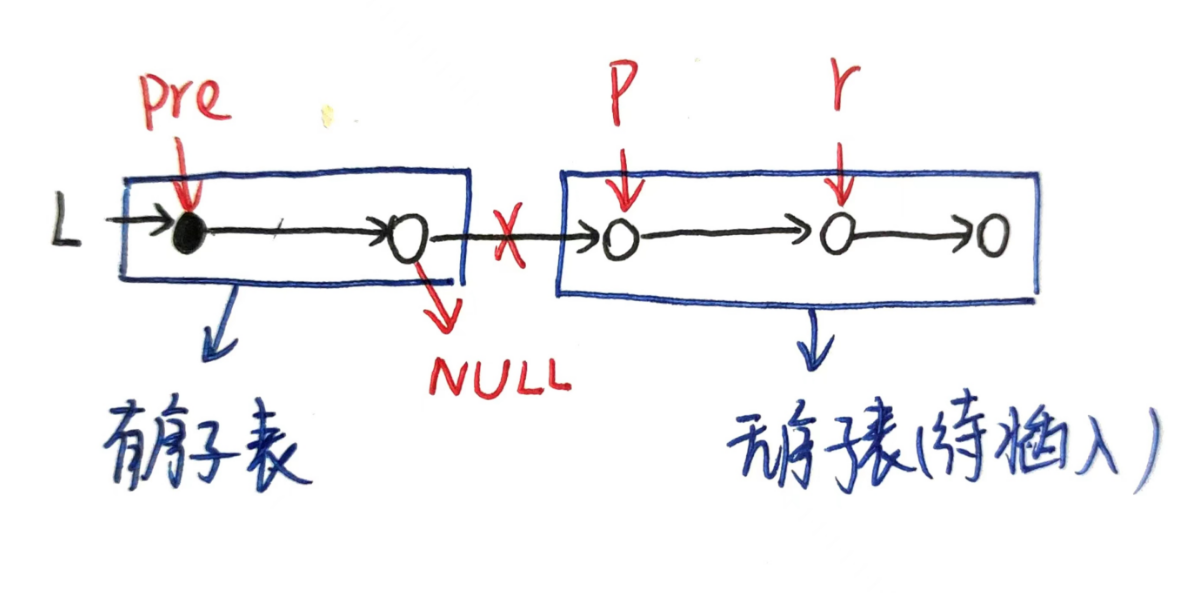 pre
P
r
L
NULL
有序子表
无序子表(待插入)